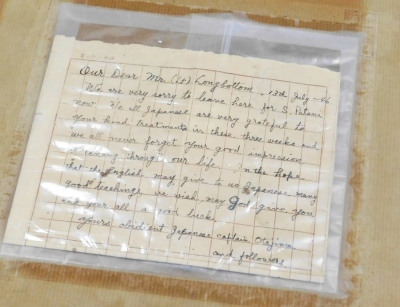 Our Dear Mr. (Lt) Longbottom, 13th July -46
We are very sorry to leave here for S. Patani
now. We all Japanese are very grateful to
your kind treatments in these three weeks and
we all never forget your good impression
through our life. In the hope
that the English may give to us Japanese many
good teachings we wish may God give you
and your all a good luck.
yours obidient Japanese captain
and followers